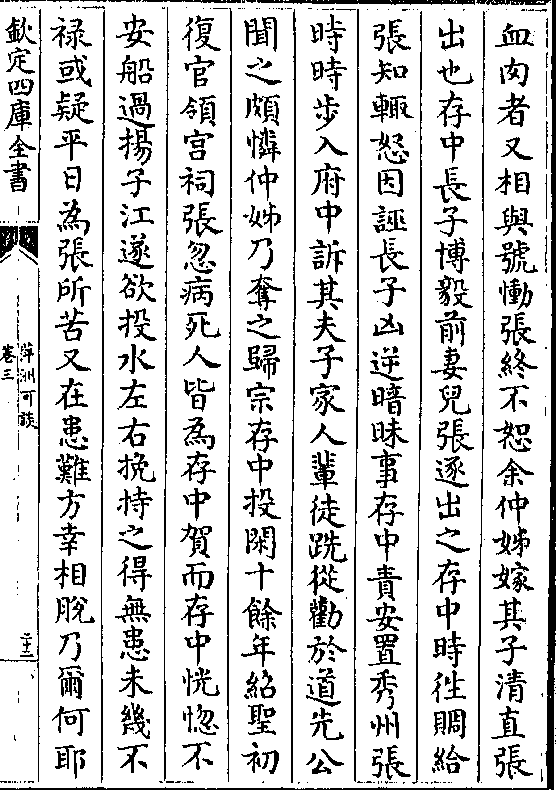 血肉者又相與號慟張終不恕余仲姊嫁其子清直張
出也存中長子博毅前妻兒張逐出之存中時徃賙給
張知輒怒因誣長子凶逆暗昧事存中責安置秀州張
時時步入府中訴其夫子家人輩徒跣從勸於道先公
聞之頗憐仲姊乃奪之歸宗存中投閑十餘年紹聖初
復官領宫祠張忽病死人皆為存中賀而存中恍惚不
安船過揚子江遂欲投水左右挽持之得無患未幾不
禄或疑平日為張所苦又在患難方幸相脫乃爾何耶
欽定四庫全書
萍洲可談
卷三
二十三